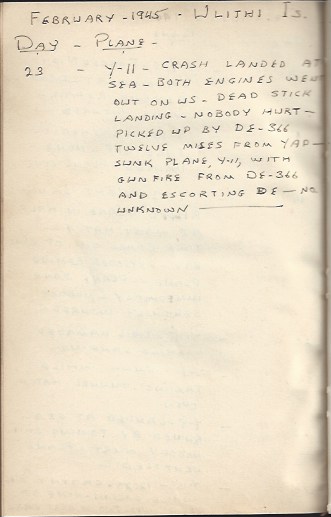 FEBRUARY - 1945 - ULITHI IS.
DAY - PLANE -
23 - Y-11 - CRASH LANDED AT
SEA - BOTH ENGINES WENT
OUT ON US - DEAD STICK
LANDING - NOBODY HURT -
PICKED UP BY DE-366
TWELVE MILES FROM YAP -
SUNK PLANE, Y-11, WITH
GUNFIRE FROM DE-366
AND ESCORTING DE - NO.
UNKNOWN